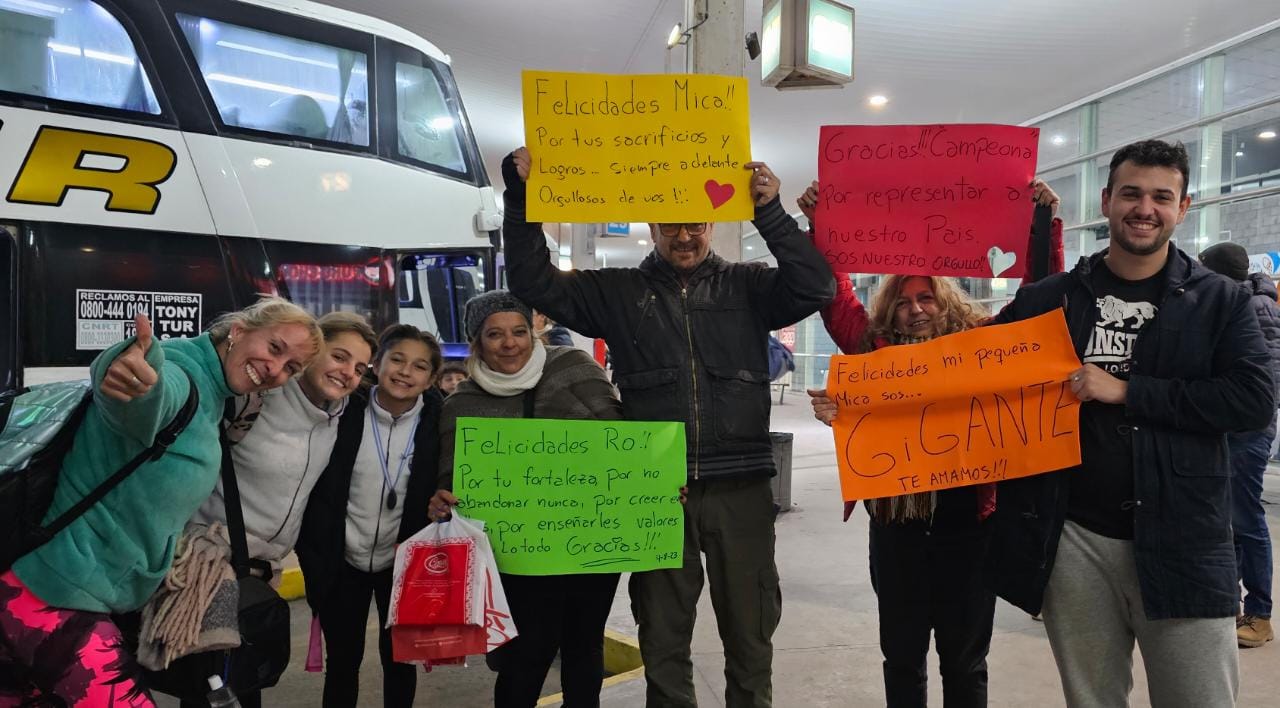 R
RECLAMOS AL
0800-444 0194
CNRT
EMPRESA
TONY
TUR
Felicidades Mica!!
Por tus sacrificios y
Logros... siempre adelante
Orgullosos de vos!!
Gracias!!! "Campeona"
Por representar a
nuestro Pais.
SOS NUESTRO ORGULLO!!
Felicidades mi pequeña
Mica sos...
GiGANTE
TE AMAMOS!!
Felicidades Ro!!
Por tu fortaleza, por no
abandonar nunca, por creer e
por enseñarles valores
Lo todo Gracias!!!
4-8-23
LONSD
LO